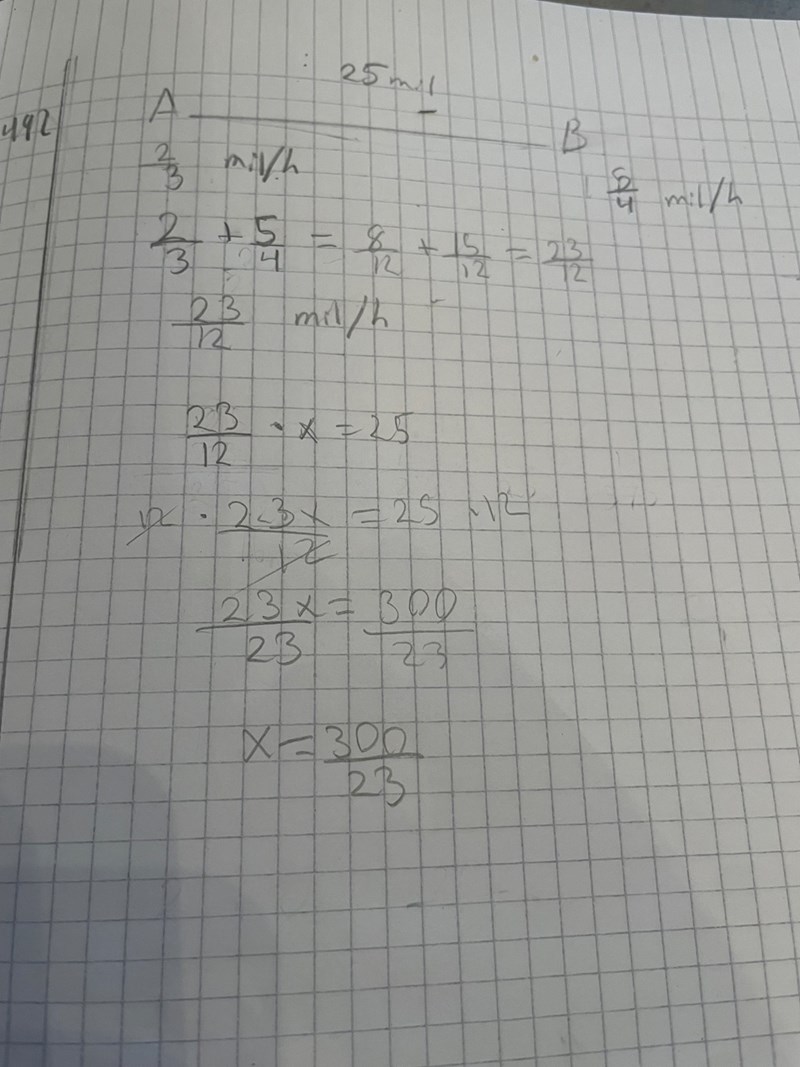 25mil
492 A B
2/3 mil/h 5/4 mil/h
2/3 + 5/4 = 8/12 + 15/12 = 23/12
23/12 mil/h
23/12 · x = 25
12 · 23x/12 = 25 · 12
23x/23 = 300/23
x = 300/23